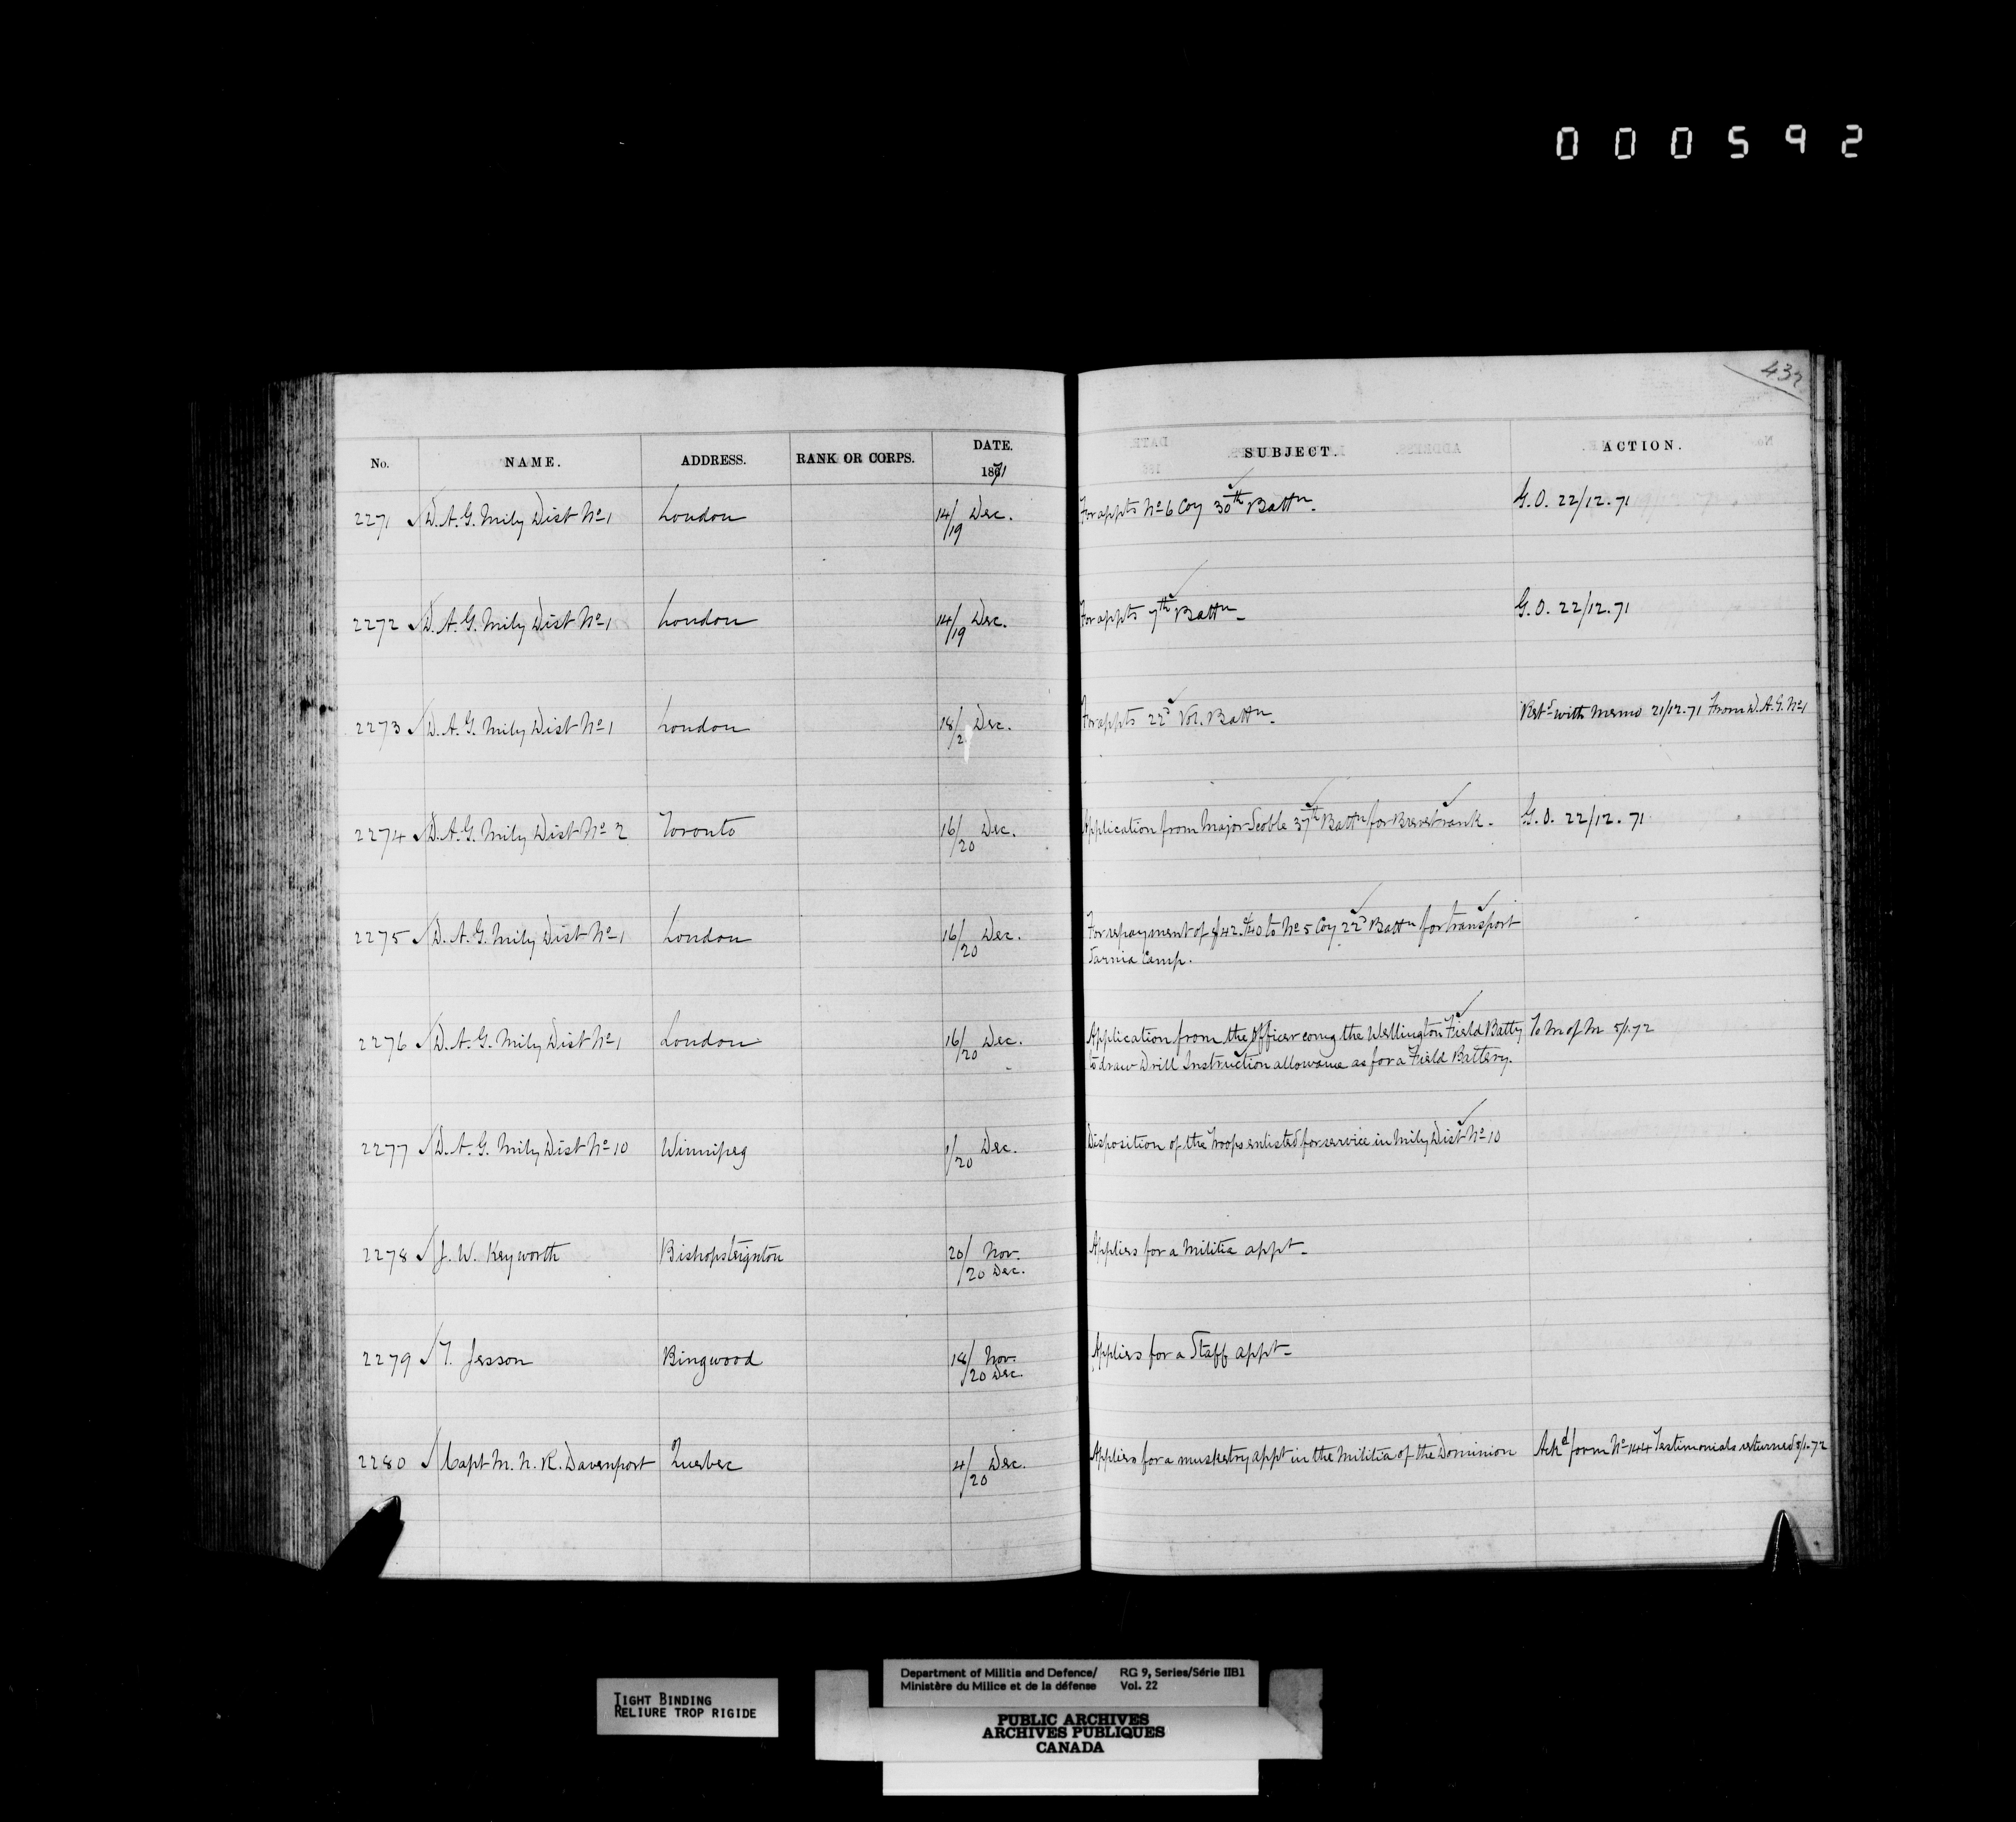 000592
432
No. NAME. ADDRESS. RANK OR CORPS. DATE. 1871 SUBJECT. ACTION.
2271 D.A.G. Mily Dist No 1 London 14/19 Dec. For appts No 6 Coy 30th Battn. G.O. 22/12.71
2272 D.A.G. Mily Dist No 1 London 14/19 Dec. For appts 7th Battn. G.O. 22/12.71
2273 D.A.G. Mily Dist No 1 London 18/2 Dec. For appts 22d Vol. Battn. Retd with memo 21/12.71 From D.A.G. No 1
2274 D.A.G. Mily Dist No 2 Toronto 16/20 Dec. Application from Major Scoble 37th Battn for Brevet rank. G.O. 22/12.71
2275 D.A.G. Mily Dist No 1 London 16/20 Dec. For repayment of $42.40 to No 5 Coy 22d Battn for transport
Sarnia Camp.
2276 D.A.G. Mily Dist No 1 London 16/20 Dec. Application from the Officer comg the Wellington Field Batty To M of M 5/1.72
to draw Drill Instruction allowance as for a Field Battery.
2277 D.A.G. Mily Dist No 10 Winnipeg 1/20 Dec. Disposition of the Troops enlisted for service in Mily Dist No 10
2278 J. W. Keyworth Bishopsteignton 20/ Nov. /20 Dec. Applies for a Militia appt.
2279 T. Jesson Bingwood 18/ Nov. /20 Dec. Applies for a Staff appt.
2280 Capt M. N. R. Davenport Quebec 4/20 Dec. Applies for a musketry appt in the Militia of the Dominion Ackd form No 144 Testimonials returned 5/1.72
TIGHT BINDING
RELIURE TROP RIGIDE
Department of Militia and Defence/ RG 9, Series/Série IIB1
Ministère du Milice et de la défense Vol. 22
PUBLIC ARCHIVES
ARCHIVES PUBLIQUES
CANADA